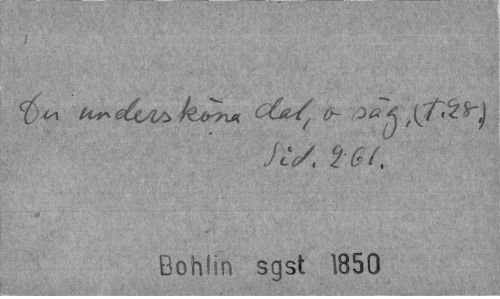 Du undersköna dal, o säg, (t.28.)
Sid. 261.
Bohlin sgst 1850